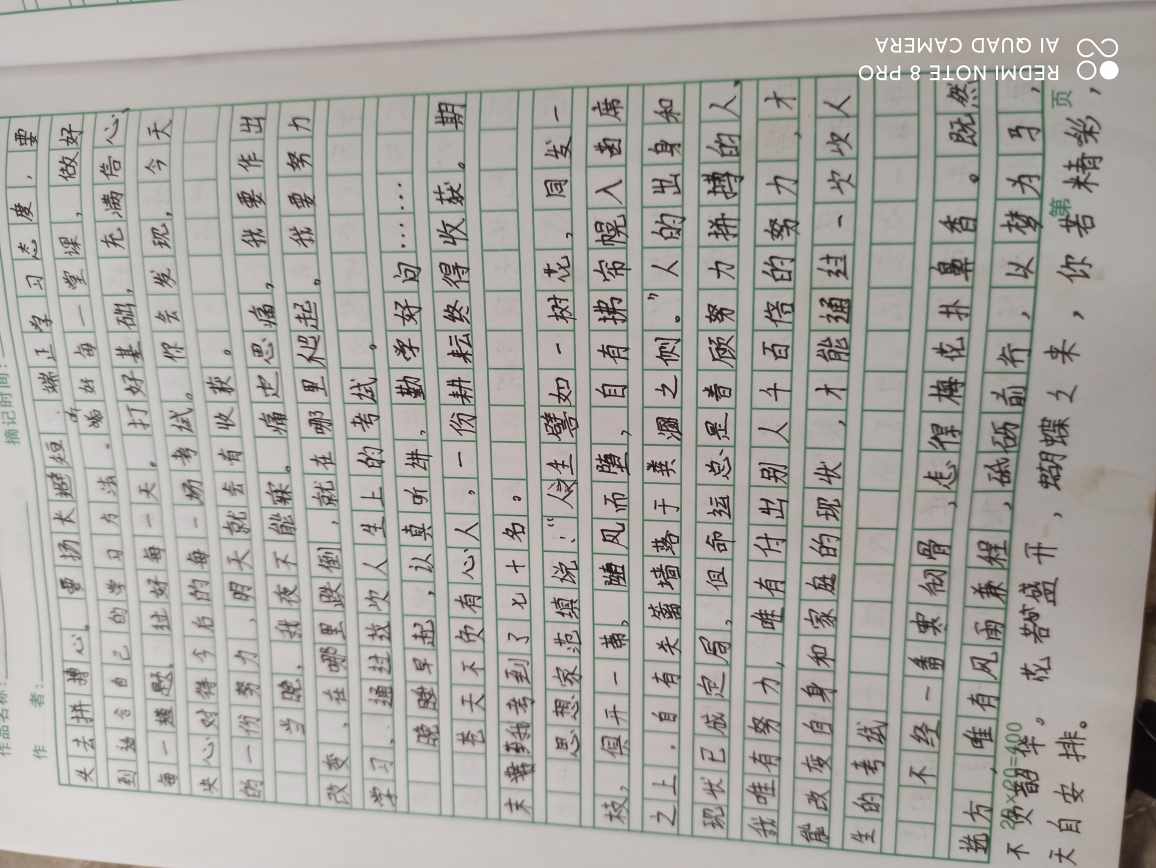 作品名称:
摘记时间:
作 者:
失去拼搏心。要扬长避短,端正学习态度,要
到适合自己的学习方法。听好每一堂课,做好
每一道题。过好每一天。打好基础,充满信心,
决心对待今后的每一场考试。你会发现,今天
的一份努力,明天就会有收获。
当晚,我夜不能寐。痛定思痛,我要作出
改变,在哪里跌倒,就在哪里爬起。我要努力
学习,通过这次人生上的考试。
晚睡早起,认真听讲,勤学好问……
苍天不负有心人,一份耕耘终得收获。期
末我考到了七十名。
思想家范缜说:“人生譬如一树花,同发一
枝,俱开一蒂,随风而堕,自有拂帘幌入茵席
之上,自有关篱墙落于粪溷之侧。”人的出身和
现状已成定局,但命运总是眷顾努力拼搏的人,
我唯有努力,唯有付出别人千百倍的努力,才
能改变自身和家庭的现状,才能通过一次次人
生的考试
不经一番寒彻骨,怎得梅花扑鼻香。既然
选方,唯有风雨兼程,砥砺前行,以梦为马,
20×20=400 第 页
不负韶华。花若盛开,蝴蝶久来,你若精彩,
天自安排。
REDMI NOTE 8 PRO
AI QUAD CAMERA